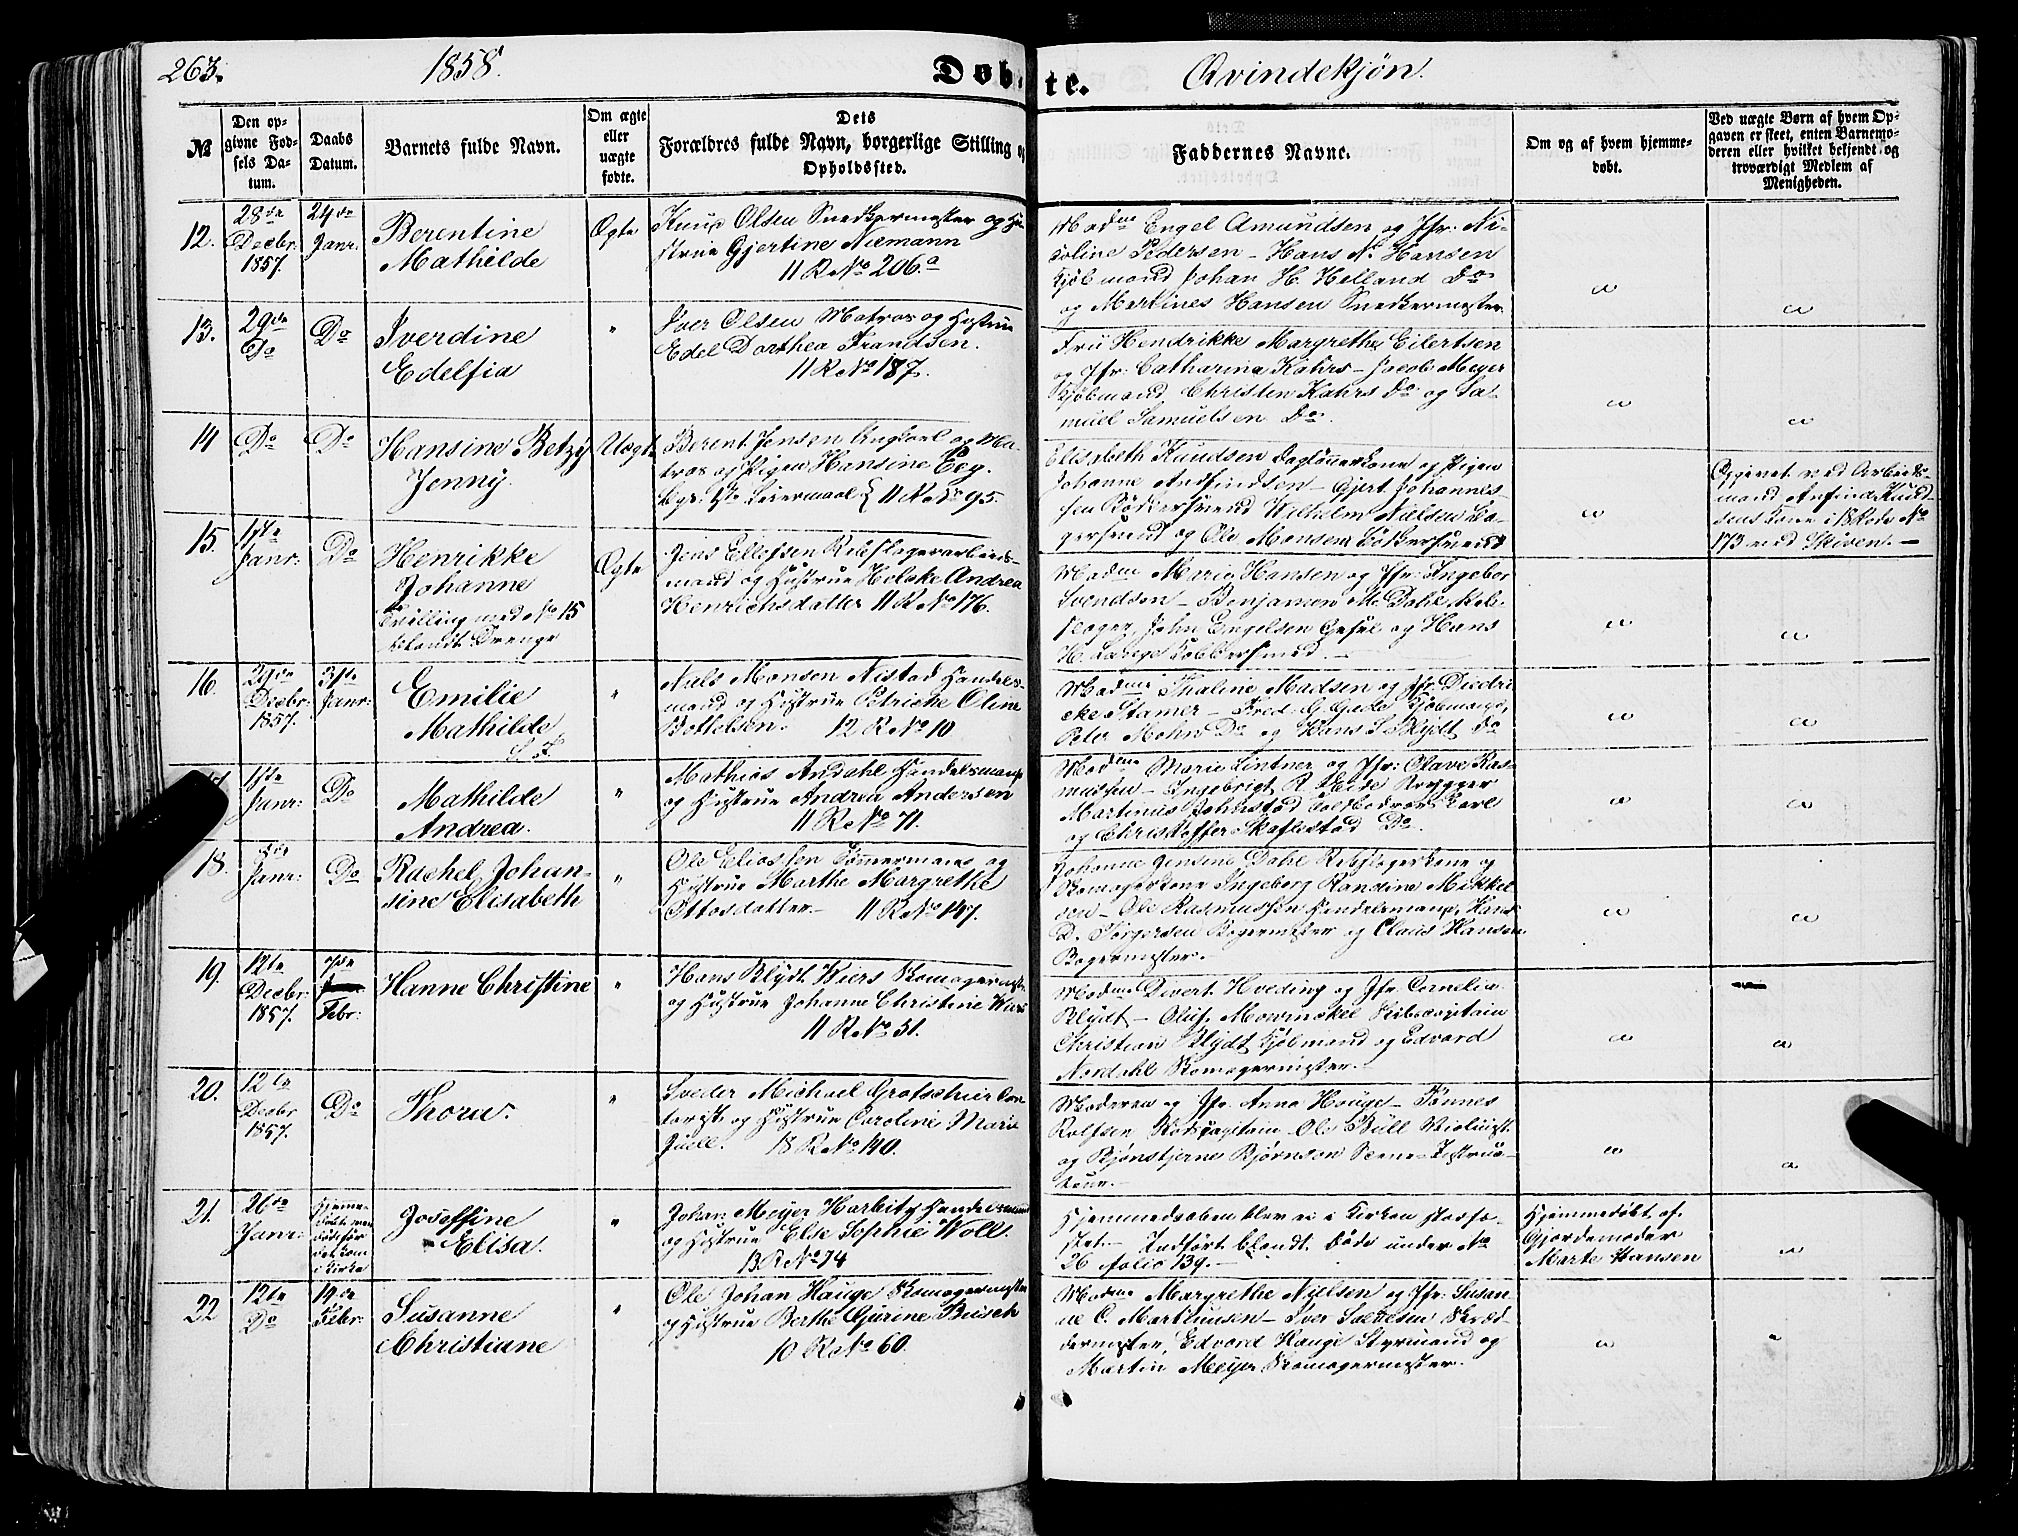 263.
1858.
Døb-
te.
Qvindekjøn.
№
Den op-
givne Fød-
sels Da-
tum.
Daabs
Datum.
Barnets fulde Navn.
Om ægte
eller
uægte
fødte.
Dets
Forældres fulde Navn, borgerlige Stilling og
Opholdssted.
Faddernes Navne.
Om og af hvem hjemme-
døbt.
Ved uægte Børn af hvem Op-
gaven er skeet, enten Barnemo-
deren eller hvilket bekjendt og
troværdigt Medlem af
Menigheden.
12.
28de
Decbr:
1857.
24de
Janr:
Berentine
Mathilde
Ægte
Knud Olsen Snedkermester og Hu-
strue Gjertine Niemann
11 R. No 206.a
Madme Engel Amundsen og Jfr: Ni-
coline Pedersen - Hans N. Hansen
Kjøbmand Johan H. Helland Do
og Martines Hansen Snedkermester
"
"
13.
29de
Do
Do
Iverdine
Edelfia
"
Iver Olsen Matros og Hustrue
Edel Dorthea Frandsen.
11 R. No 187.
Fru Hendrikke Margrethe Eilertsen
og Jfr: Catharina Kahrs - Jacob Meyer
Kjøbmand, Christen Kahrs Do og Sa-
muel Samuelsen Do.
"
"
14
Do
Do
Hansine Betzy
Jenny.
Uægte
Berent Jensen Ungkarl og Ma-
tros og Pigen Hansine Eeg.
Begs: 1ste Leiermaal 11 R. No 95.
Elisabeth Knudsen Dagleierkone og Pigen
Johanne Andfindsen - Gjert Johannes-
sen Bødkersvend Wilhelm Nielsen Ba-
gersvend og Ole Monsen Bødkersvend
"
Opgivet ved Arbeids-
mand Anfind Knud-
sens Kone i 18 Rode No
173 ved Skiven. -
15.
1ste
Janr:
Do
Henrikke
Johanne
Tvilling med No 15
blandt Drenge
Ægte
Jens Ellefsen Rebslagerarbeids-
mand og Hustrue Helvke Andrea
Henrichsdatter 11 R. No 176.
Madme Marie Hansen og Jfr: Ingebor
Svendsen - Benjamin M. Dahl Reb-
slager, John Engelsen Gesel og Hans
H. Lange Kobbersmed
"
"
16.
29de
Decbr:
1857.
31te
Janr:
Emilie
Mathilde
"
Niels Monsen Nistad Handels-
mand og Hustrue Petricke Oline
Bottelsen. 12 R. No 10
Madme Thaline Madsen og Jfr: Diedri-
cke Stamer - Fred: G. Gade Kjøbmand,
Peter Mohn Do og Hans S. Blydt Do
"
"
1ste
Janr:
Do
Mathilde
Andrea.
"
Mathias Andahl Handelsmand
og Hustrue Andrea Andersen
11 R. No 71.
Madme Marie Lintner og Jfr: Olave Ras-
mussen - Ingebrigt R. Heise Brygger
Martinus Johnstad
og Christoffer Skaflestad Do.
"
"
18.
Janr:
Do
Rachel Johan-
sine Elisabeth
"
Ole Eliassen Tømmermand og
Hustrue Marthe Margrethe
Ottosdatter - 11 R. No 147.
Johanne Jensine Dahl Rebslagerkone og
Skomagerkone Ingeborg Randine Mikkel-
sen - Ole Rasmussen Handelsmand, Hans
D. Torgersen Bagermester og Claus Hansen
Bagermester.
"
"
19.
12te
Decbr:
1857.
7de
Febr:
Hanne Christine
"
Hans Blydt Wiers Skomagermest:
og Hustrue Johanne Christine Wiers
11 R. No 51.
Madme Divert Hveding og Jfr: Cornelia
Blydt - Oluf Mowinckel Skibscapitain
Christian Blydt Kjøbmand og Edvard
Nordahl Skomagermester.
"
"
20.
12te
Decbr
1857.
Do
Thora.
"
Sveder Michael Grotschier Con-
torist og Hustrue Caroline Marie
Juell. 18 R. No 140.
Moderen og Jfr. Anna Houge - Tønnes
Rolfsen Skibscapitain - Ole Bull Violinist
og Bjønstjerne Bjørnson Scene-Instruc-
teur.
"
"
21.
26de
Janr:
Hjemme-
døbt men
døde før
det kom
i Kirke
Joseffine
Elisa.
"
Johan Meyer Harbitz Handelsmand
og Hustrue Else Sophie Woll.
13 R. No 74
Hjemmedaaben blev ei i Kirken stadfæ-
stet. - Indført blandt Døde under No
26 folio 139. -
Hjemmedøbt af
Gjordemoder
Marte Hansen
"
22
12te
Do
19de
Febr:
Susanne
Christiane
"
Ole Johan Hauge Skomagermester
og Hustrue Berthe Gurine Busch
10 R. No 60.
Madme Margrethe Nielsen og Jfr: Susan-
ne C. Martinusen - Iver Salvesen Skræd-
dermester, Edvard Hauge Styrmand og
Martin Meyer Skomagermester.
"
"